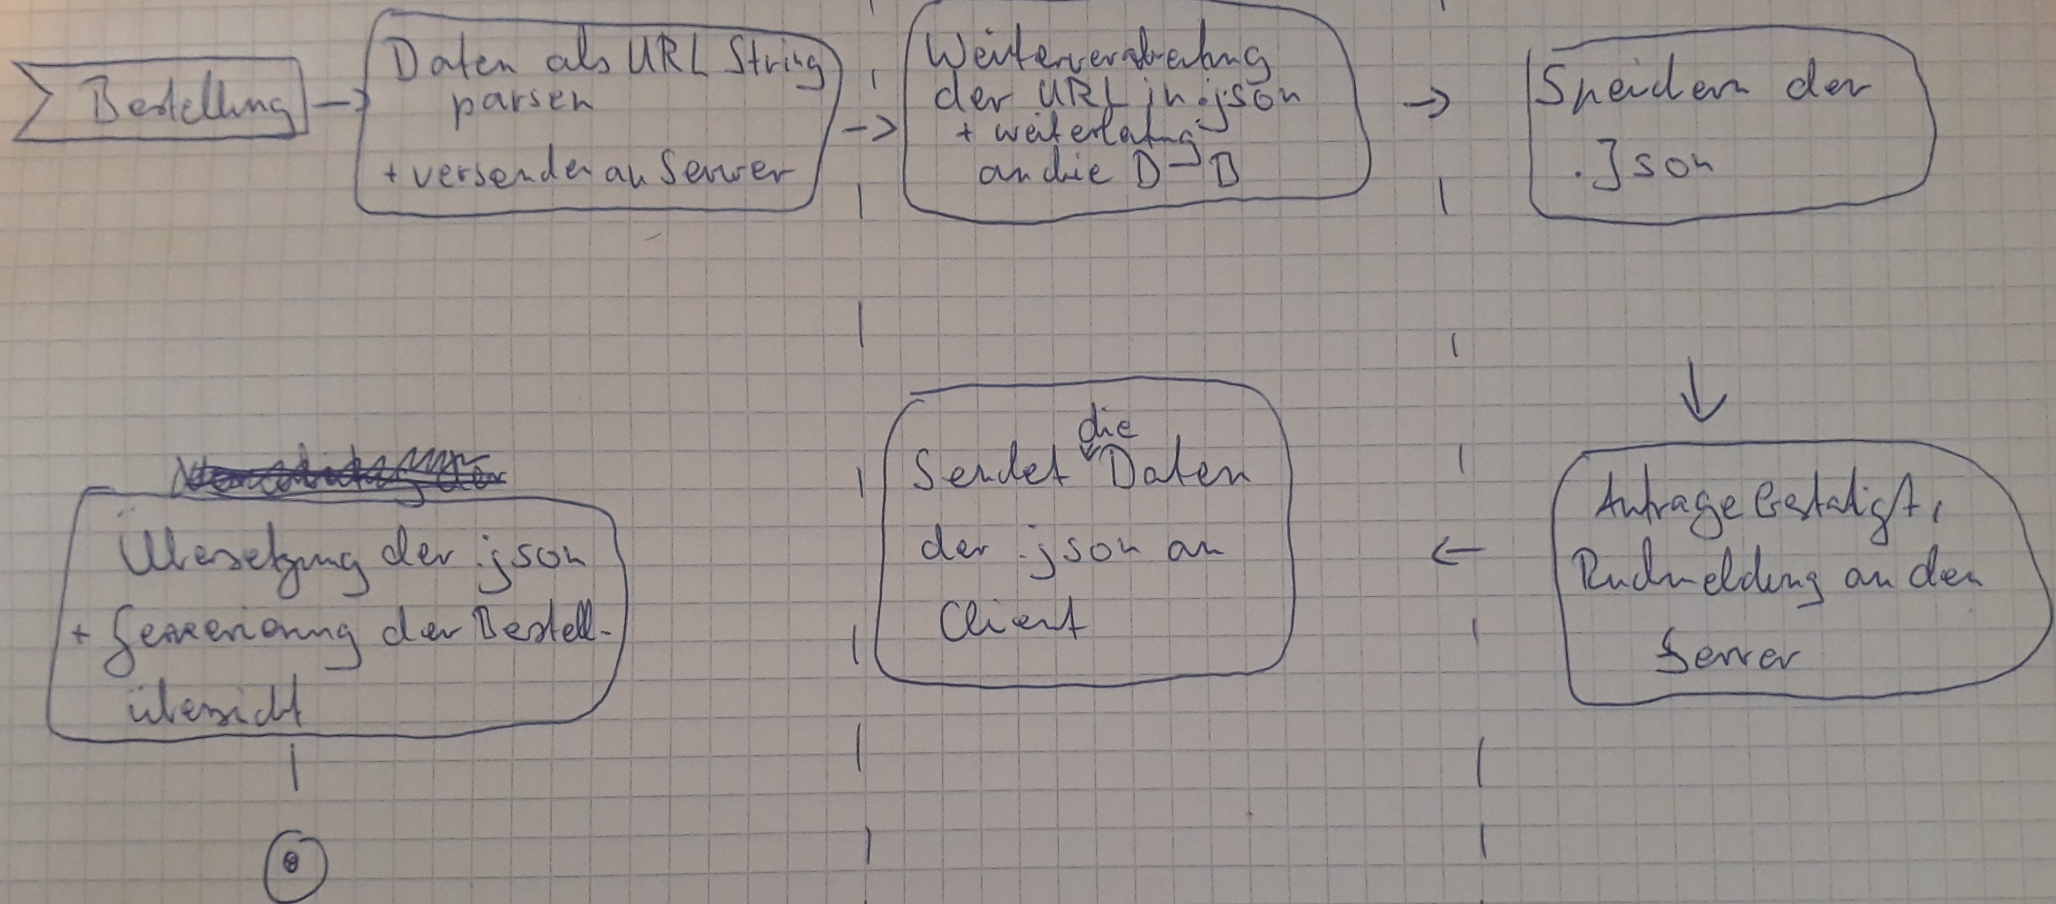 Bestellung
Daten als URL String
parsen
+ versenden an Server
Weiterverarbeitung
der URL in .json
+ weiterleitung
an die D-B
Speichern der
.Json
Anfrage bestätigt,
Rückmeldung an den
Server
die
Sendet Daten
der .json an
Client
Übersetzung der .json
+ Generierung der Bestell-
übersicht